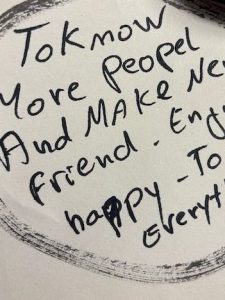 To know
More Peopel
And MAKE Ne
friend. En
happy - To
Everyt